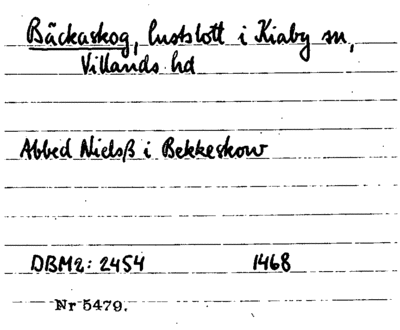 Bäckaskog, lustslott i Kiaby sn,
Villands hd
Abbed Nielsß i Bekkeskow
DBM2: 2454 1468
Nr 5479.